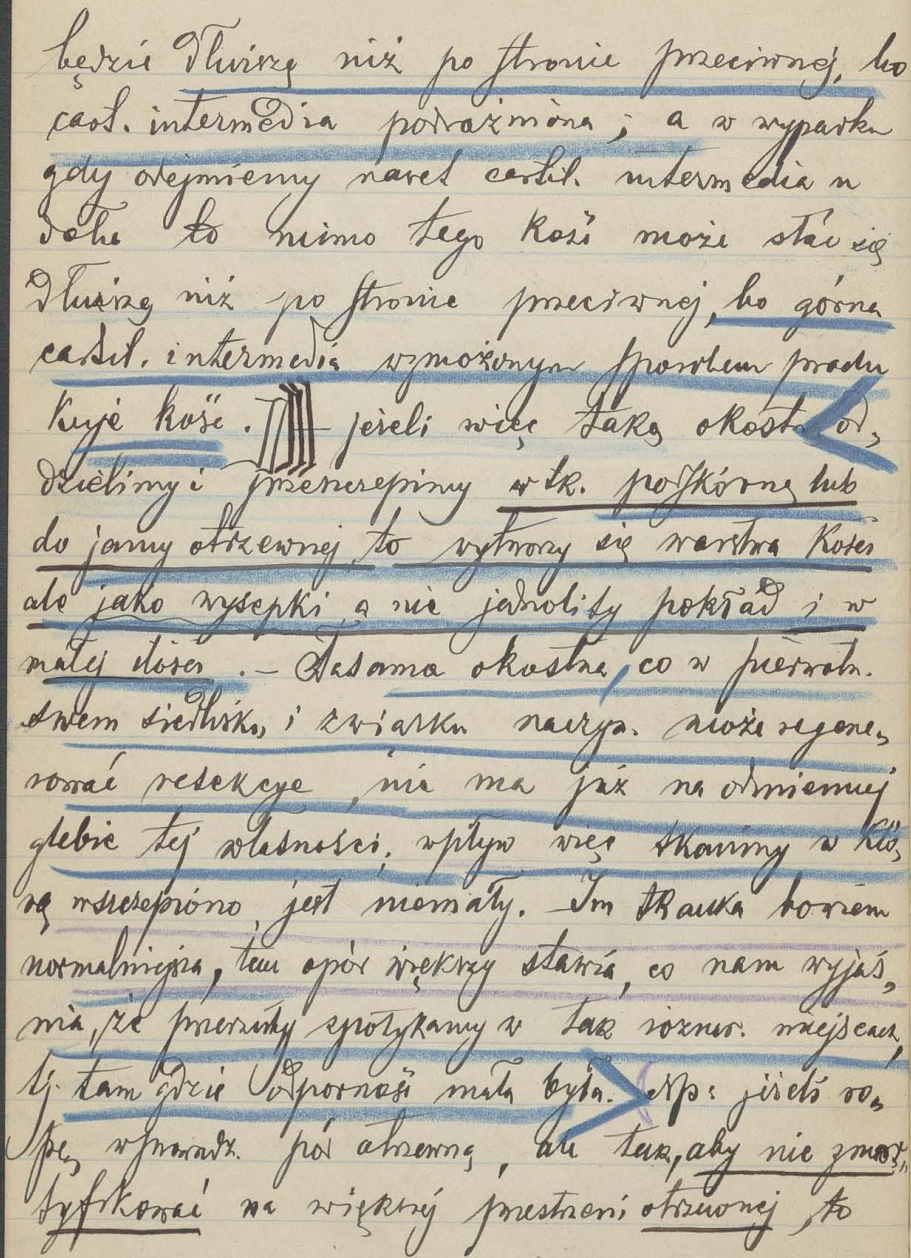 będzie dłuższą niż po stronie przeciwnej, bo
cart. intermedia podrażniona; a w wypadku
gdy odejmiemy nawet cartil. intermedia u
dołu to mimo tego kość może stać się
dłuższą niż po stronie przeciwnej, bo górna
cartil. intermedia wzmożonym sposobem produ
kuje kość. jeżeli więc taką okostn od,
dzielimy i przeszczepimy w tk. podskórną lub
do jamy otrzewnej, to wytworzy się warstwa kości
ale jako wysepki a nie jednolity pokład i w
małej ilości. — Ta sama okostna, co w pierwotn.
swem siedlisku, i związku naczyn. może regene,
rować resekcye, nie ma już na odmiennej
glebie tej własności; wpływ więc tkaniny w któ,
rą wszczepiono, jest niemały. — Im tkanka bowiem
normalniejsza, tem opór większy stawia, co nam wyjaś,
nia, że przerzuty spotykamy w tak rozmar. miejscach,
tj. tam gdzie odporność mała była. Np: jeżeli ro,
pę wprowadz. pod otrzewną, ale tak, aby nie
na większej przestrzeni otrzewnej, to